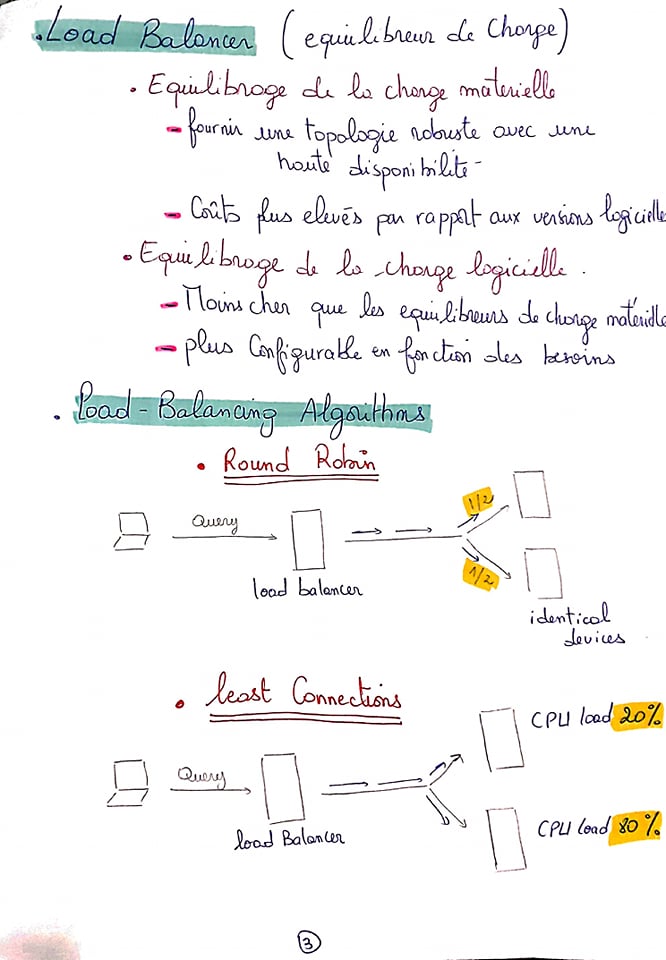 . Load Balancer (equilibreur de Charge)
. Equilibrage de la charge materielle
- fournir une topologie robuste avec une
haute disponibilité-
- Coûts plus elevés par rapport aux versions logicielles
. Equilibrage de la charge logicielle.
- Moins cher que les equilibreurs de charge matérielle
- plus Configurable en fonction des besoins
. Load-Balancing Algorithms
. Round Robin
Query
1/2
load balancer
1/2
identical
devices
. least Connections
CPU load 20%
Query
load Balancer
CPU load 80%
3